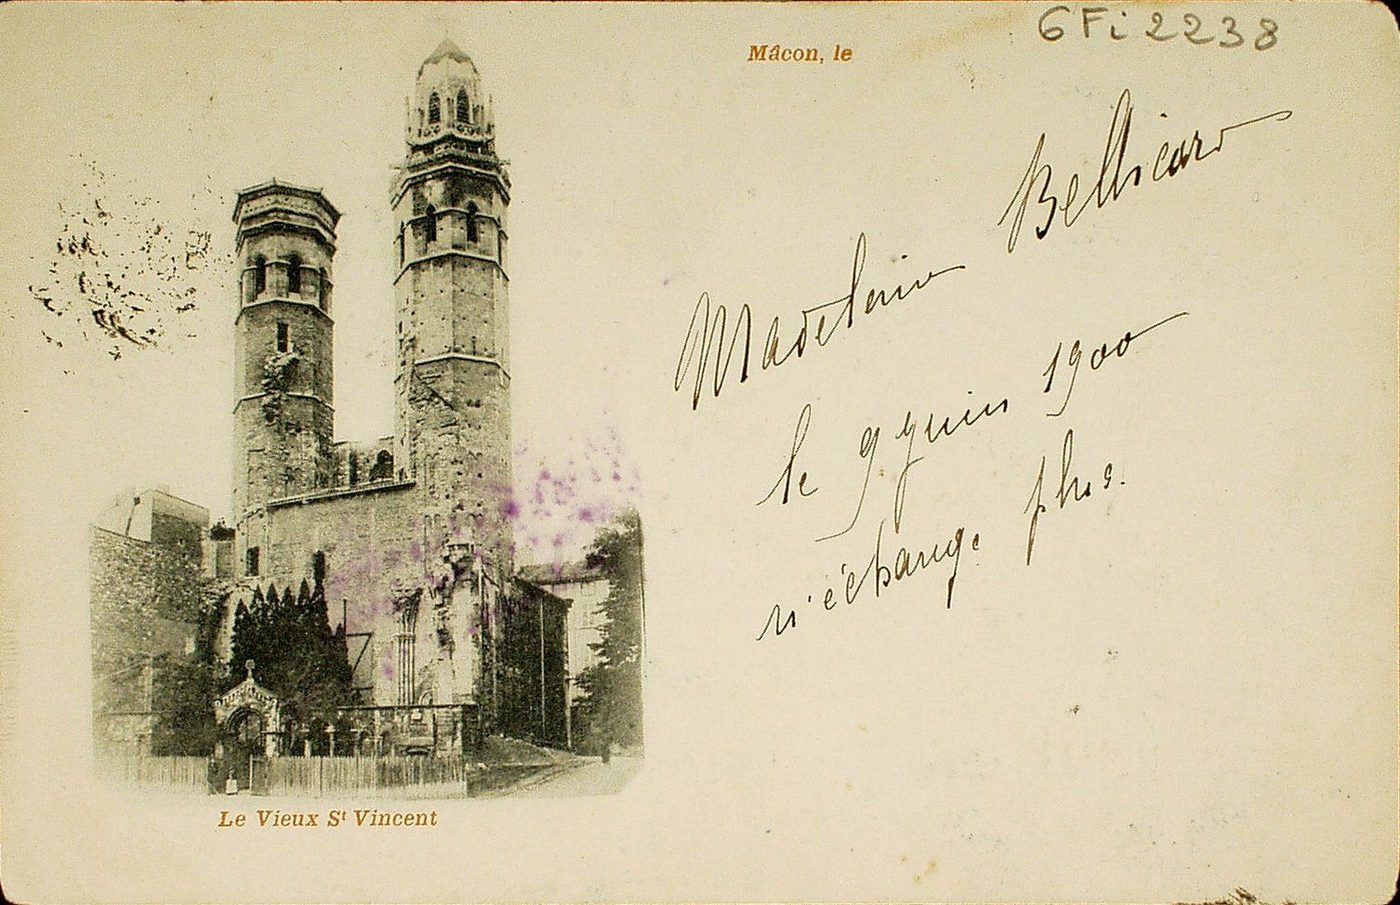 6Fi2238
Mâcon, le
Madeleine Bellicard
le 9 juin 1900
n'échange plus.
Le Vieux St Vincent